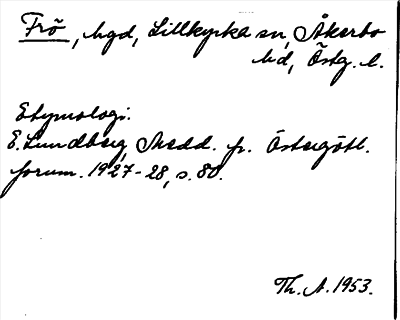 Frö, hgd, Lillkyrka sn, Åkerbo
hd, Östg. l.
Etymologi.
E. Lundberg, Medd. fr. Östergötl.
forum. 1927-28, s. 80.
Th. A. 1953.